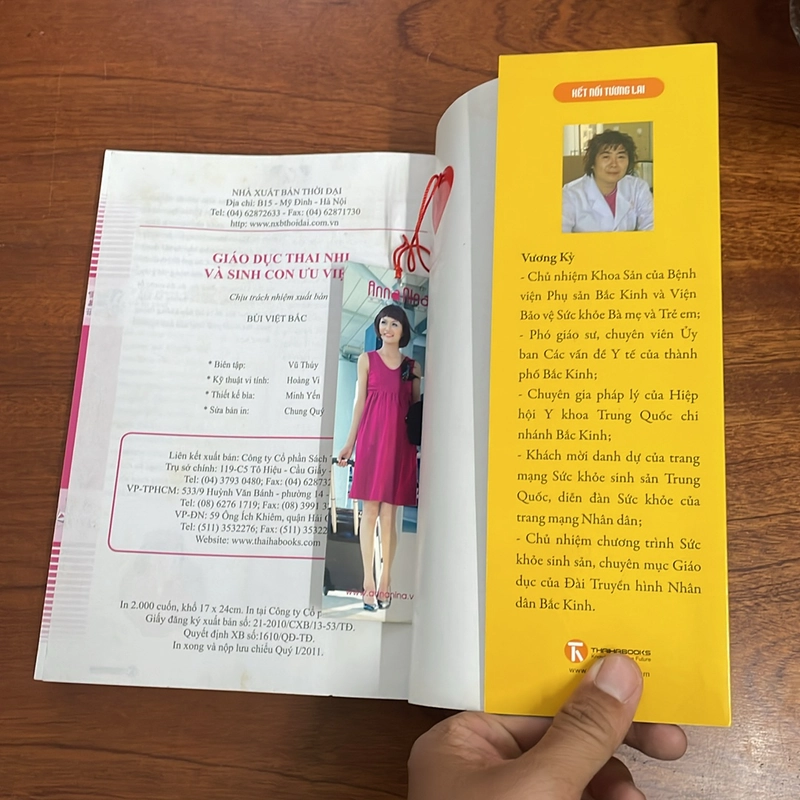 NHÀ XUẤT BẢN THỜI ĐẠI
Địa chỉ: B15 - Mỹ Đình - Hà Nội
Tel: (04) 62872633 - Fax: (04) 62871730
http: www.nxbthoidai.com.vn
GIÁO DỤC THAI NHI
VÀ SINH CON ƯU VIỆ
Chịu trách nhiệm xuất bản
BÙI VIỆT BẮC
* Biên tập: Vũ Thủy
* Kỹ thuật vi tính: Hoàng Vi
* Thiết kế bìa: Minh Yến
* Sửa bản in: Chung Quý
Liên kết xuất bản: Công ty Cổ phần Sách
Trụ sở chính: 119-C5 Tô Hiệu - Cầu Giấy
Tel: (04) 3793 0480; Fax: (04) 628732
VP-TPHCM: 533/9 Huỳnh Văn Bánh - phường 14
Tel: (08) 6276 1719; Fax: (08) 3991 3
VP-ĐN: 59 Ông Ích Khiêm, quận Hải C
Tel: (511) 3532276; Fax: (511) 3532
Website: www.thaihabooks.com
In 2.000 cuốn, khổ 17 x 24cm. In tại Công ty Cổ p
Giấy đăng ký xuất bản số: 21-2010/CXB/13-53/TĐ.
Quyết định XB số:1610/QĐ-TĐ.
In xong và nộp lưu chiểu Quý I/2011.
Anna Nina
www.annanina.v
KẾT NỐI TƯƠNG LAI
Vương Kỳ
- Chủ nhiệm Khoa Sản của Bệnh
viện Phụ sản Bắc Kinh và Viện
Bảo vệ Sức khỏe Bà mẹ và Trẻ em;
- Phó giáo sư, chuyên viên Ủy
ban Các vấn đề Y tế của thành
phố Bắc Kinh;
- Chuyên gia pháp lý của Hiệp
hội Y khoa Trung Quốc chi
nhánh Bắc Kinh;
- Khách mời danh dự của trang
mạng Sức khỏe sinh sản Trung
Quốc, diễn đàn Sức khỏe của
trang mạng Nhân dân;
- Chủ nhiệm chương trình Sức
khỏe sinh sản, chuyên mục Giáo
dục của Đài Truyền hình Nhân
dân Bắc Kinh.
THAIHABOOKS
Future
www.